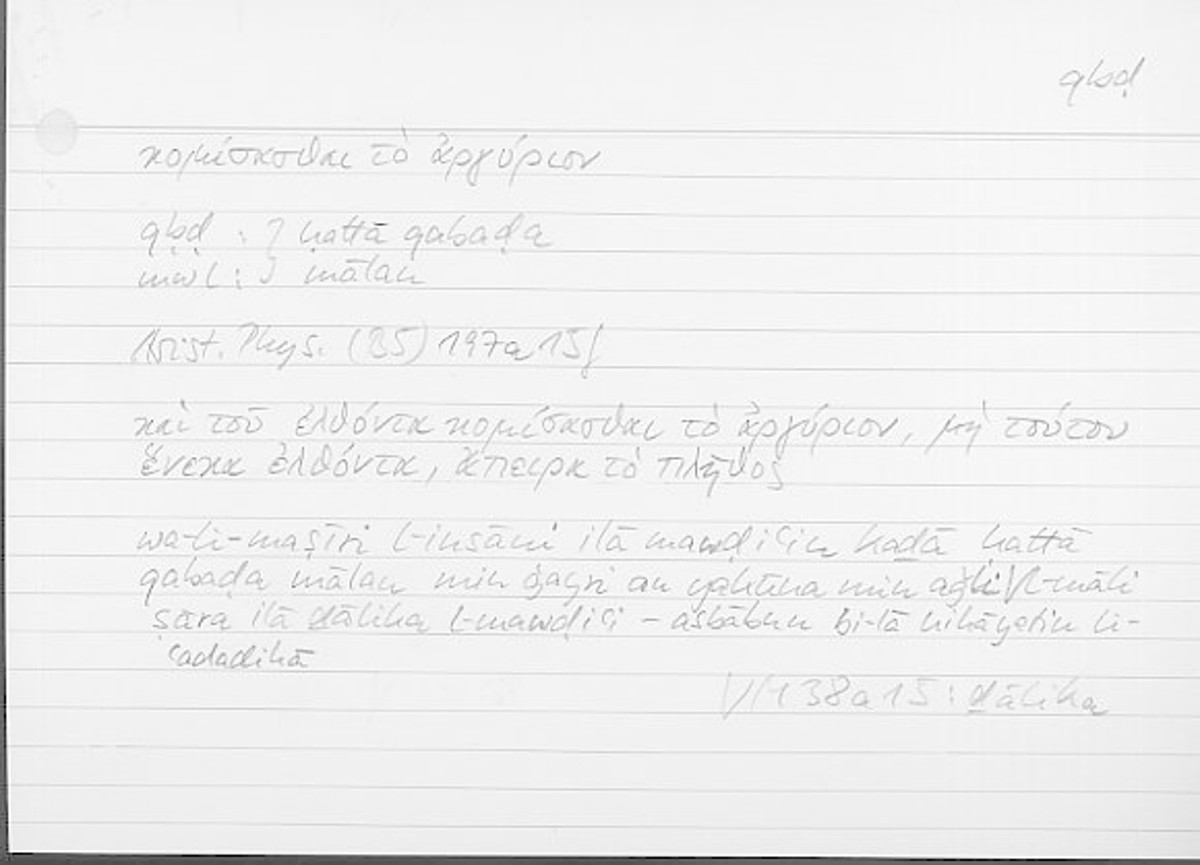 qbḍ
κομίσασθαι τὸ ἀργύριον
qbḍ : } ḥattā qabaḍa
mwl : } mālan
Arist. Phys. (B5) 197a15f
καὶ τοῦ ἐλθόντα κομίσασθαι τὸ ἀργύριον, μὴ τούτου
ἕνεκα ἐλθόντα, ἄπειρα τὸ πλῆθος
wa-li-maṣīri l-insāni ilā mawḍiʿin kaḏā ḥattā
qabaḍa mālan min ġayri an yakūna min aǧli \/l-māli
ṣāra ilā ḏālika l-mawḍiʿi – asbābun bi-lā nihāyatin li-
ʿadadihā
\/H 38a15: ḏālika